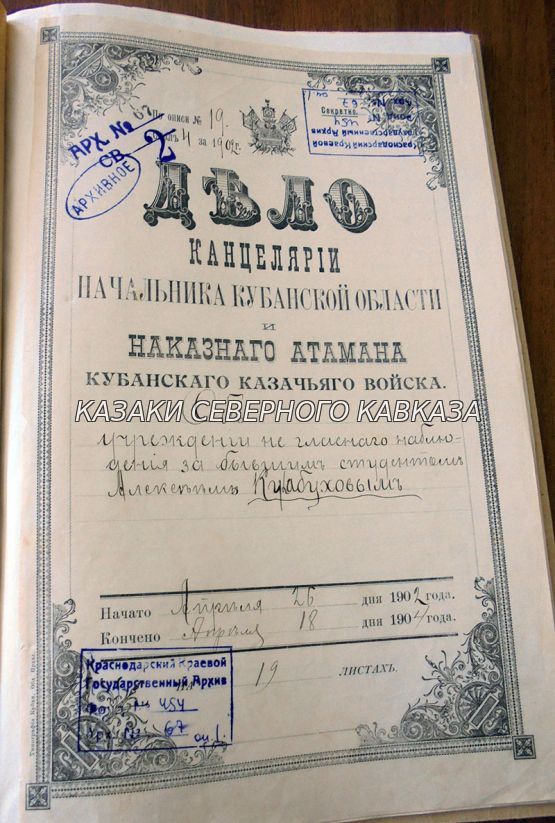 АРХ. № 67
СВ. 2
АРХИВНОЕ
По описи № 19.
за 1902 г.
Краснодарский Краевой
Государственный Архив
Фонд № 454
Арх. № 67
Секретно.
ДѢЛО
КАНЦЕЛЯРІИ
НАЧАЛЬНИКА КУБАНСКОЙ ОБЛАСТИ
И
НАКАЗНАГО АТАМАНА
КУБАНСКАГО КАЗАЧЬЯГО ВОЙСКА.
КАЗАКИ СЕВЕРНОГО КАВКАЗА
учрежденіи не гласнаго наблю-
денія за бывшимъ студентомъ
Алексѣемъ Кулабуховымъ
Начато Апрѣля 26 дня 1902 года.
Кончено Апрѣля 18 дня 1904 года.
19 ЛИСТАХЪ.
Краснодарский Краевой
Государственный Архив
Фонд № 454
Арх. № 67 оп. 1.